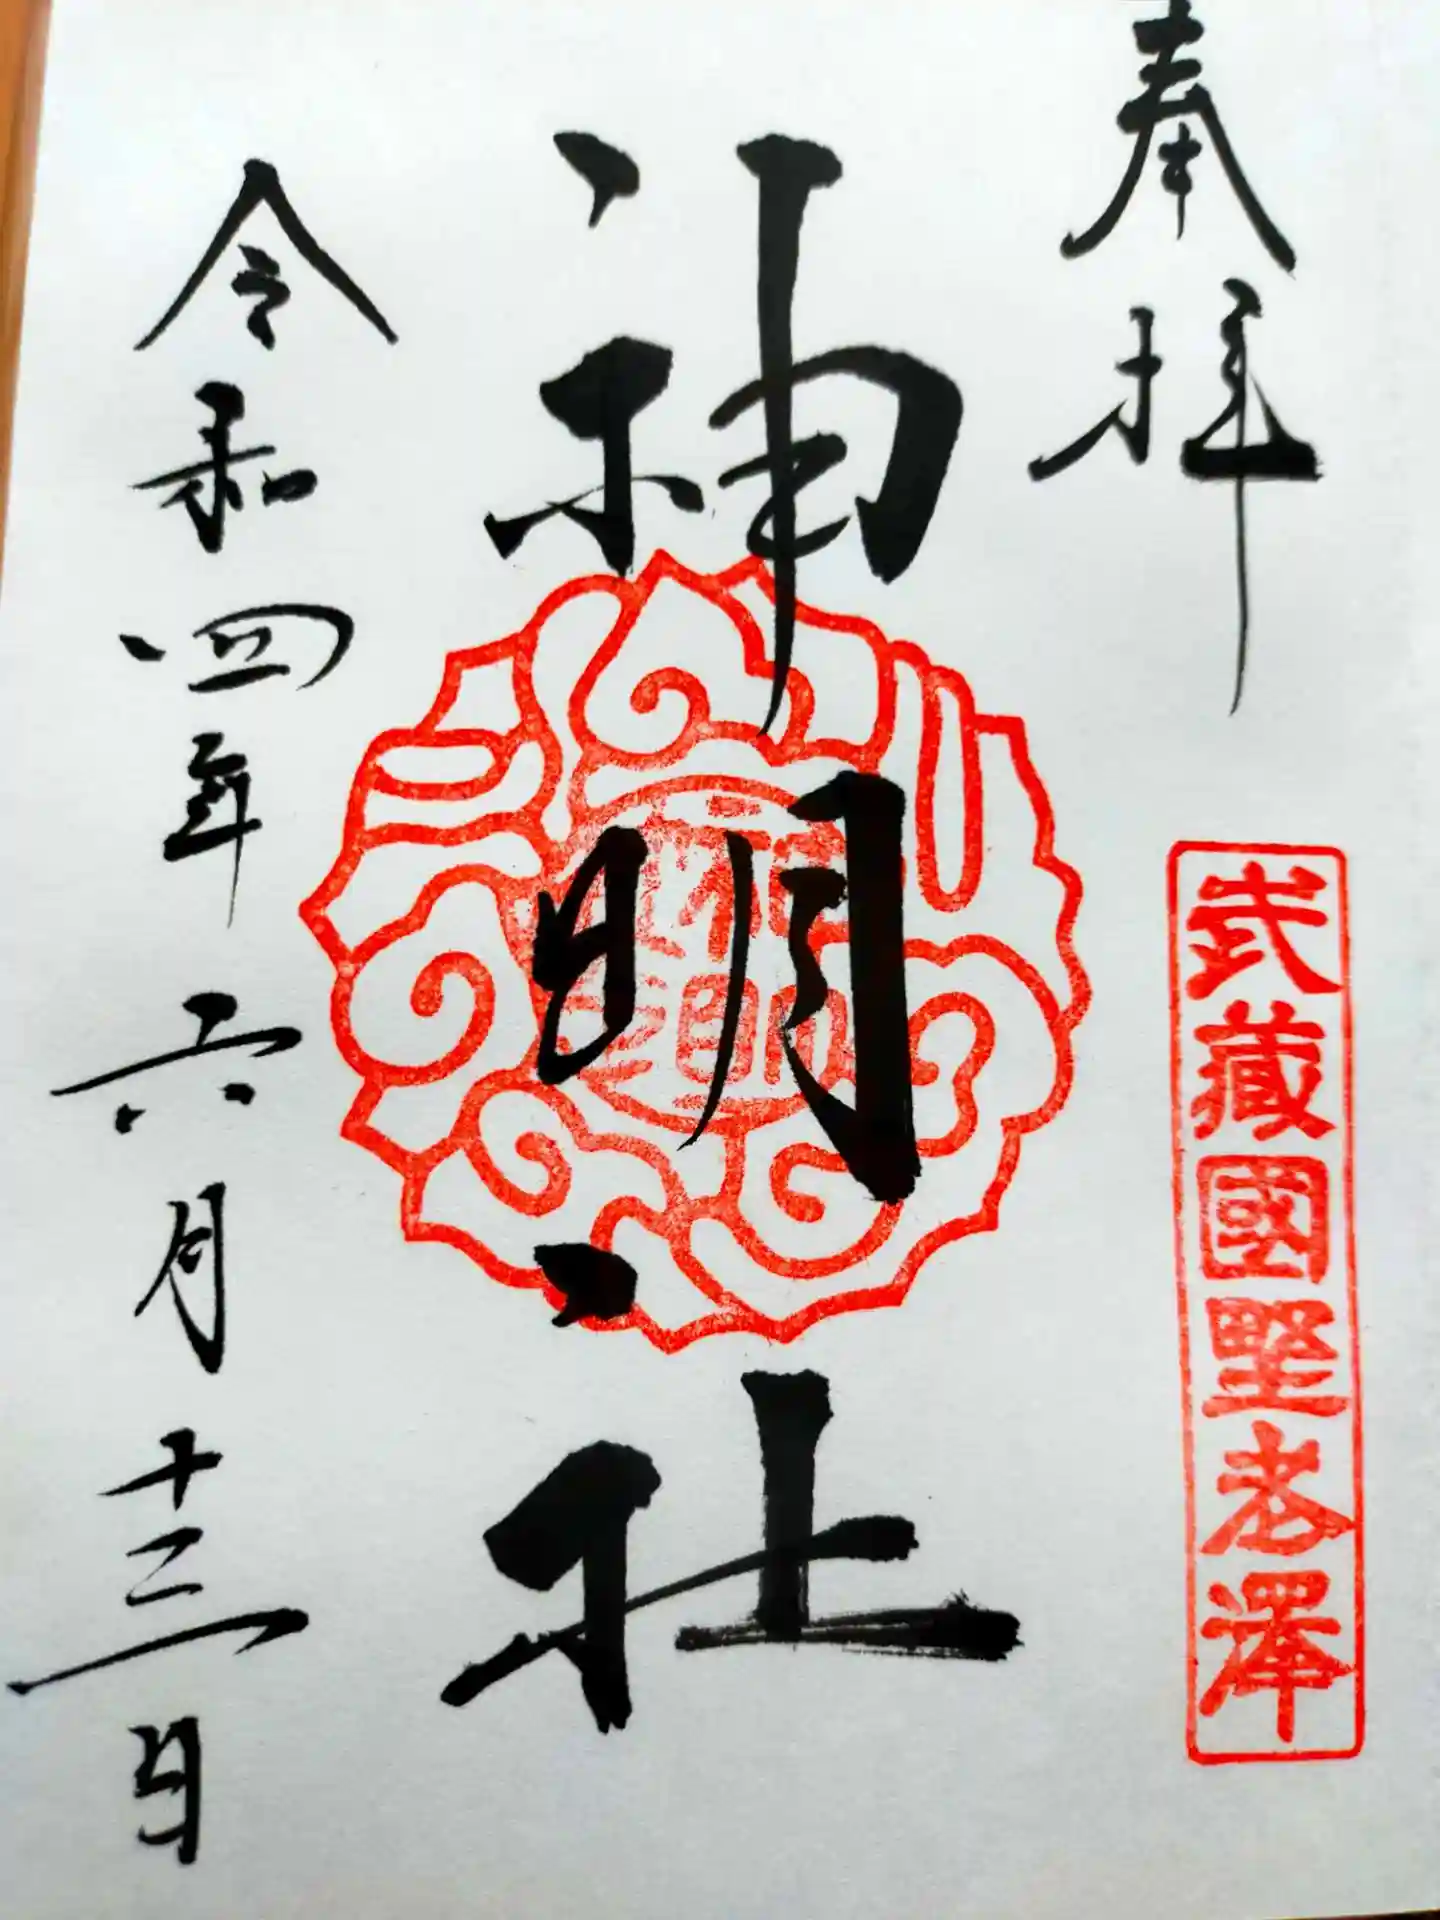 奉拝
武藏國野老澤
神明社
令和四年六月十三日